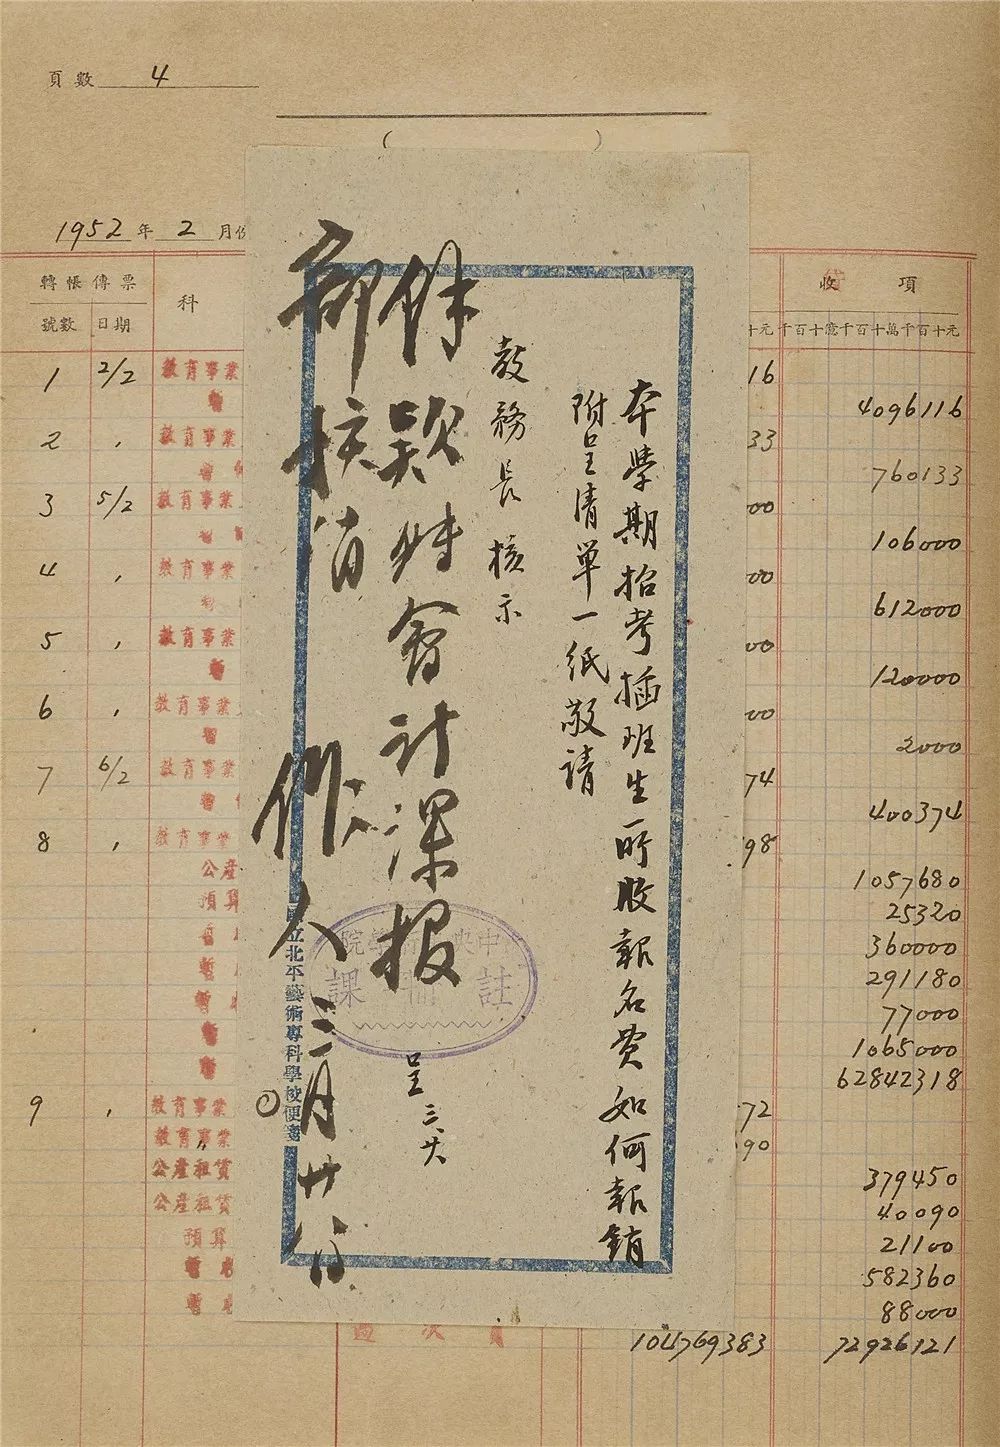 頁數 4
1952年2月份
轉帳傳票
號數 日期
科
收項
十元
千百十億千百十萬千百十元
1 2/2 教育事業 16
4096116
2 , 教育事業 33
760133
3 5/2 教育事業 00
106000
4 , 教育事業 00
612000
5 , 教育事業 00
120000
6 , 教育事業 00
2000
7 6/2 教育事業 74
400374
8 , 教育事業 98
公產 1057680
預算 25320
360000
291180
77000
1065000
62842318
9 , 教育事業 72
教育事業 90
公產租賃 379450
公產租賃 40090
預算 21100
582360
88000
過次頁
104769383 72926121
本學期招考插班生所收報名費如何報銷
附呈清單一紙敬請
教務長核示
呈 三.廿六
餘款財會計課報
部核消
作人 三月廿
註冊課
立北平藝術專科學校便箋